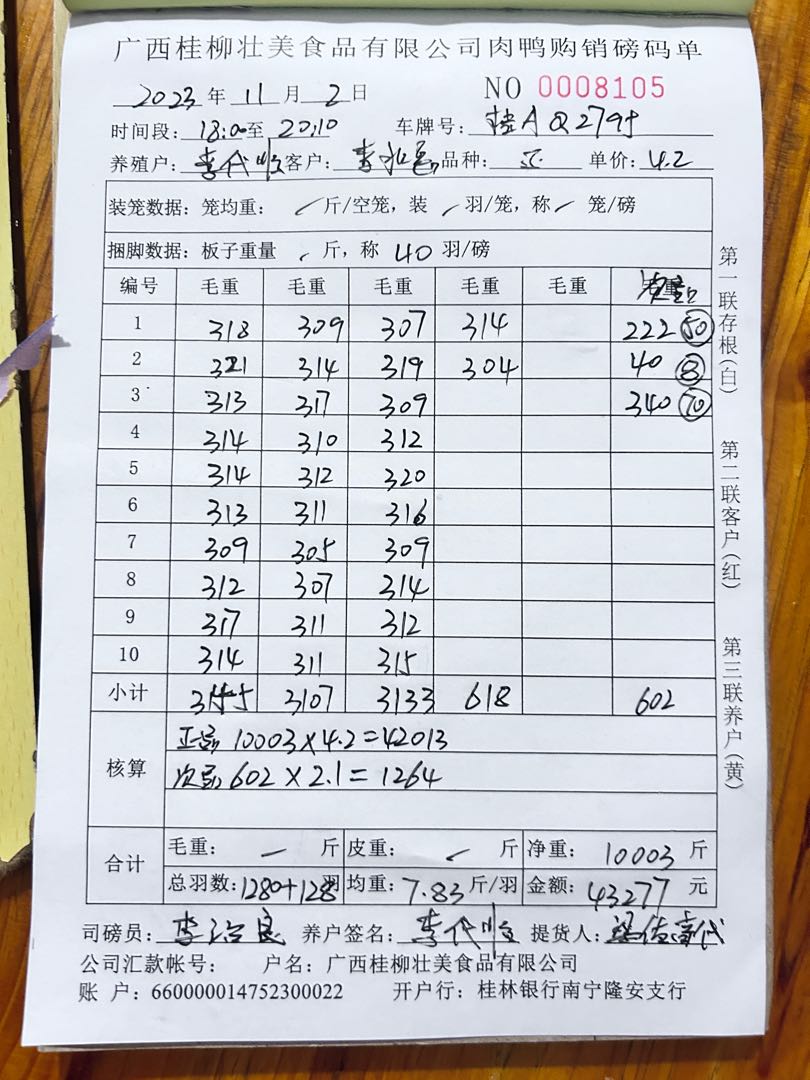 广西桂柳壮美食品有限公司肉鸭购销磅码单
2023年 11月 2日 NO 0008105
时间段: 18:00至 20:10 车牌号: 桂A Q279
养殖户: 李代顺 客户: 李 品种: 单价: 4.2
装笼数据: 笼均重: / 斤/空笼, 装 / 羽/笼, 称 / 笼/磅
捆脚数据: 板子重量 / 斤, 称 40 羽/磅
编号 毛重 毛重 毛重 毛重 毛重
1 318 309 307 314 222 50
2 321 314 319 304 40 8
3 313 317 309 340 70
4 314 310 312
5 314 312 320
6 313 311 316
7 309 305 309
8 312 307 314
9 317 311 312
10 314 311 315
小计 3145 3107 3133 618 602
核算
正品 10003×4.2=42013
次品 602×2.1=1264
合计
毛重: — 斤 皮重: / 斤 净重: 10003 斤
总羽数: 1280+128羽 均重: 7.83 斤/羽 金额: 43277 元
司磅员: 李治良 养户签名: 李代顺 提货人:
公司汇款帐号: 户名: 广西桂柳壮美食品有限公司
账 户: 660000014752300022 开户行: 桂林银行南宁隆安支行
第一联存根(白)
第二联客户(红)
第三联养户(黄)